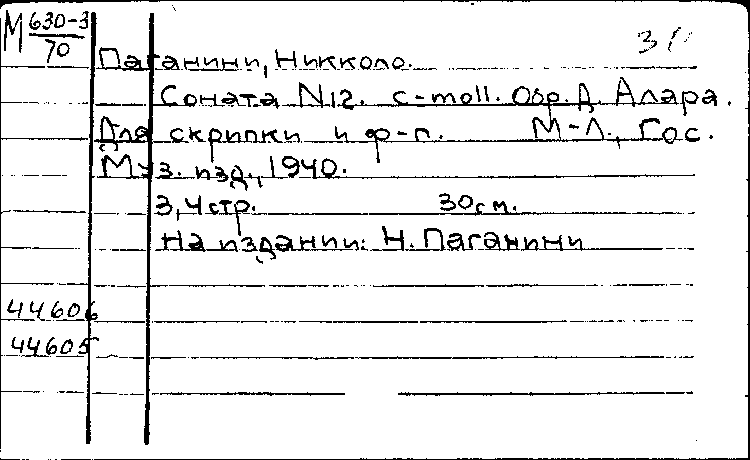 М 630-3
70
Паганини, Никколо.
Соната N12. c-moll. Обр. Д. Алара.
Для скрипки и ф-п. М-Л., Гос.
Муз. изд., 1940.
3, 4 стр. 30 см.
На издании: Н. Паганини
44606
44605